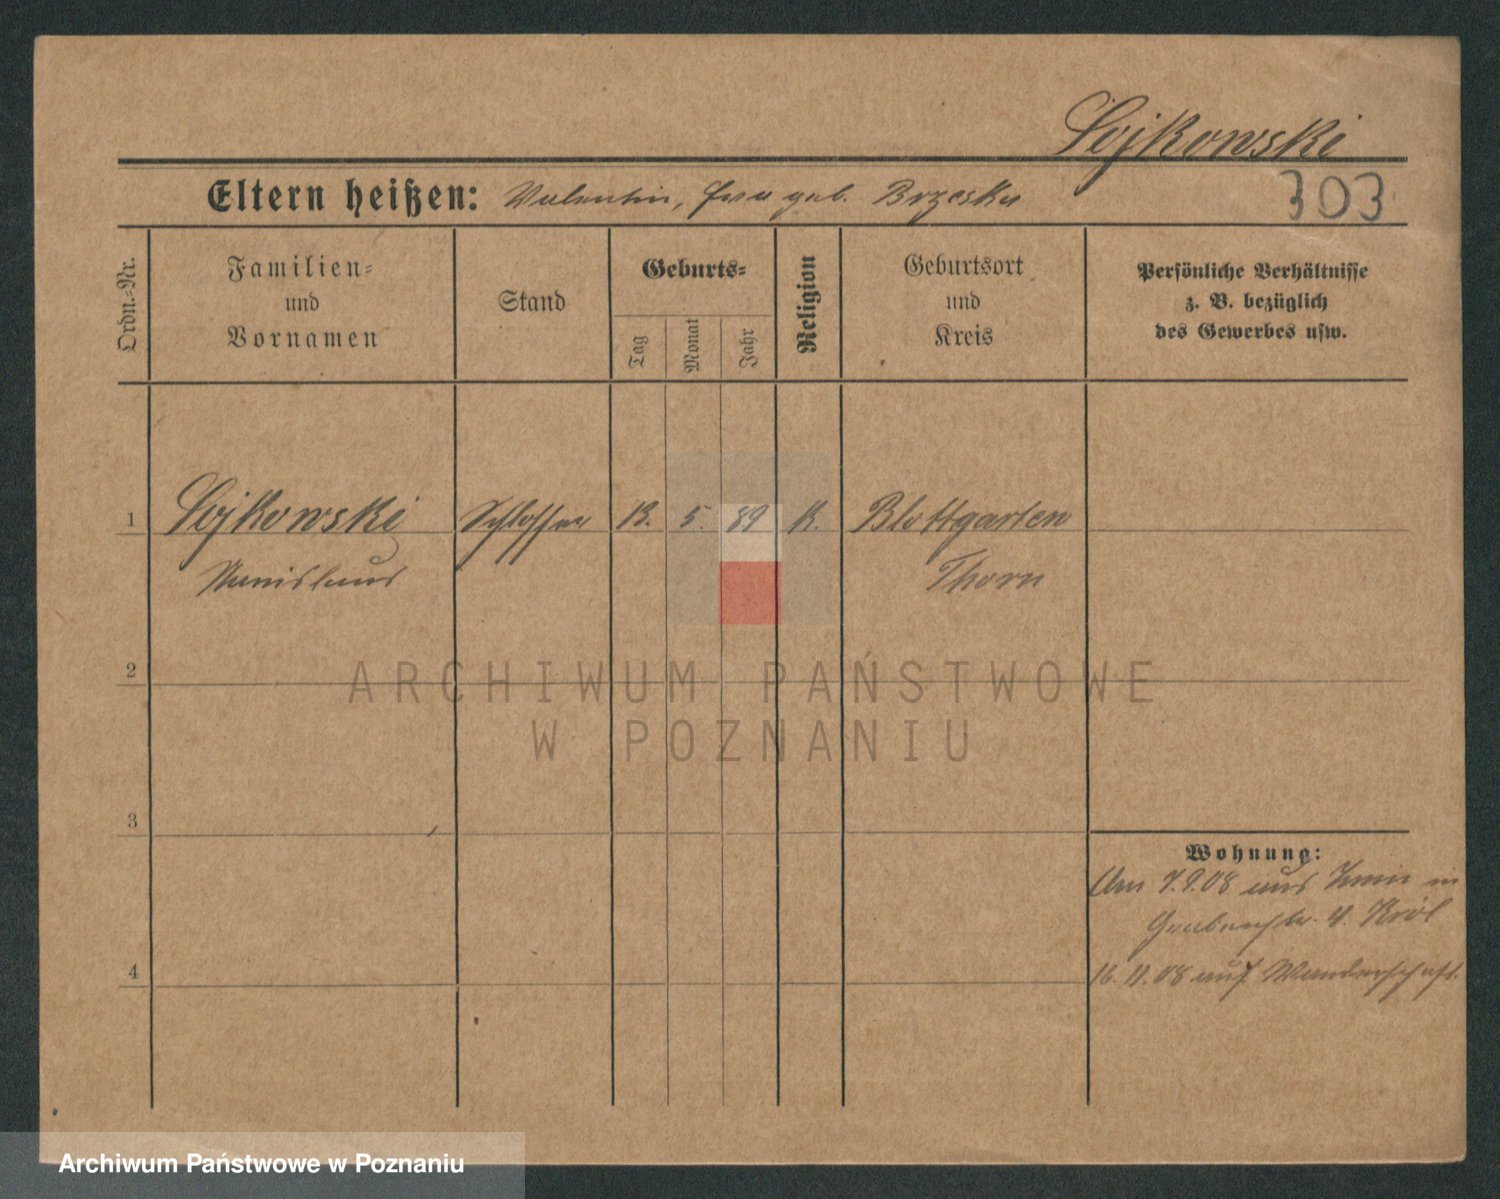 Sojkowski
Eltern heißen: Valentin, Eva geb. Brzeska
303
Ordn.-Nr.
Familien-
und
Vornamen
Stand
Geburts-
Tag
Monat
Jahr
Religion
Geburtsort
und
Kreis
Persönliche Verhältnisse
z. B. bezüglich
des Gewerbes usw.
1 Sojkowski Schlosser 13. 5. 89 K. Blottgarten
Stanislaus Thorn
ARCHIWUM PAŃSTWOWE
W POZNANIU
2
3
Wohnung:
Am 7.9.08 aus Znin in
4. Król
4
16.11.08 auf Wanderschaft.
Archiwum Państwowe w Poznaniu